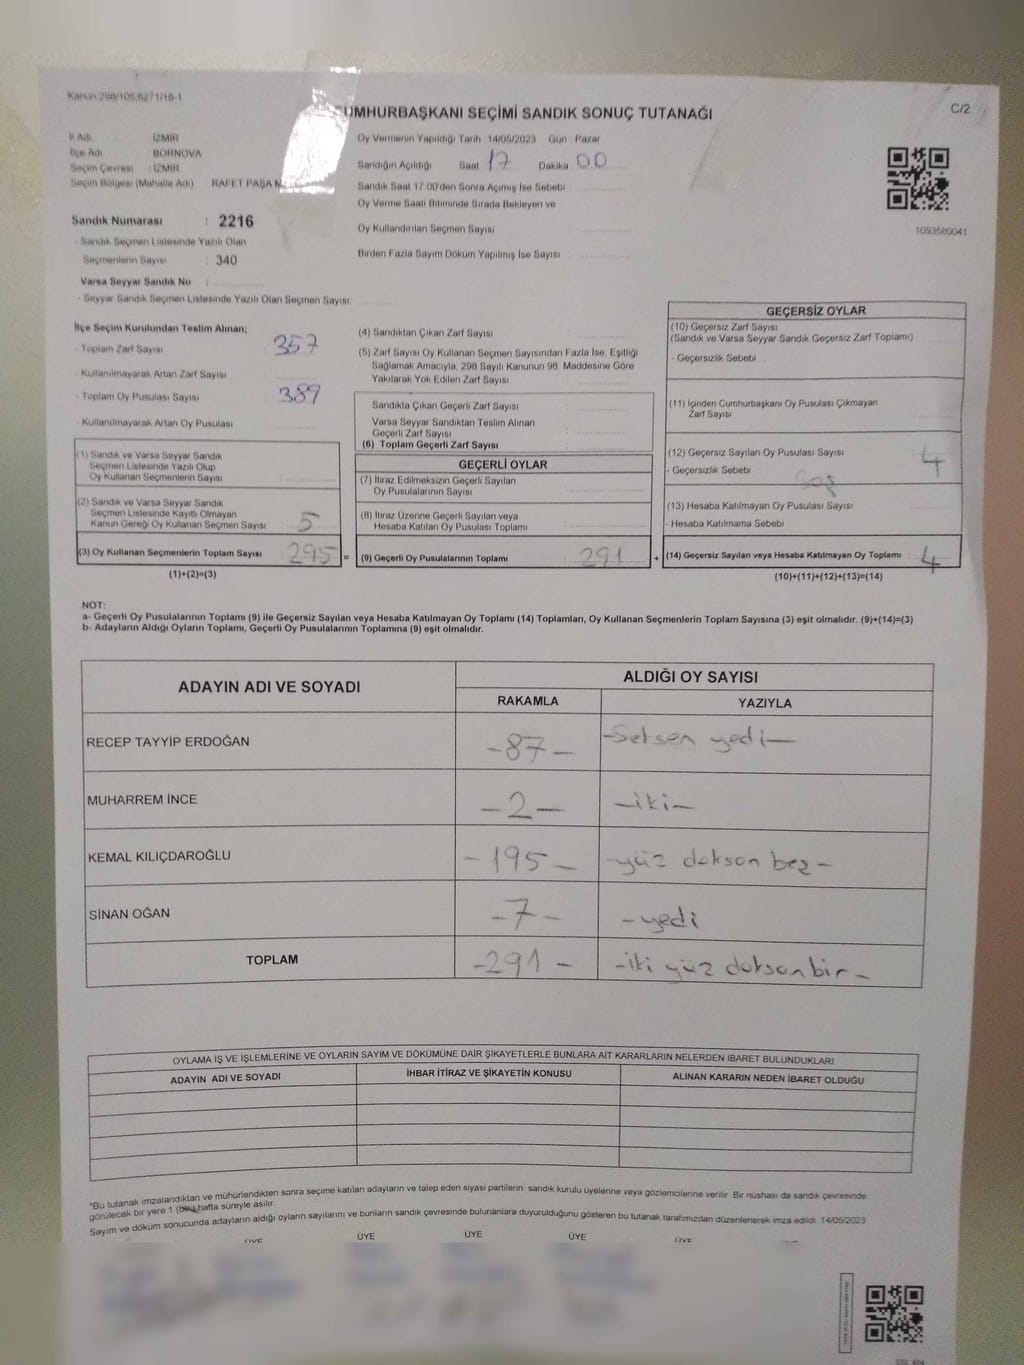 Kanun 298/105,6271/18-1
CUMHURBAŞKANI SEÇİMİ SANDIK SONUÇ TUTANAĞI
C/2
İl Adı : İZMİR
İlçe Adı : BORNOVA
Seçim Çevresi : İZMİR
Seçim Bölgesi (Mahalle Adı) : RAFET PAŞA
Oy Vermenin Yapıldığı Tarih 14/05/2023 Gün : Pazar
Sandığın Açıldığı Saat 17 Dakika 00
Sandık Saat 17.00'den Sonra Açılmış İse Sebebi :
Oy Verme Saati Bitiminde Sırada Bekleyen ve
Oy Kullandırılan Seçmen Sayısı :
Birden Fazla Sayım Döküm Yapılmış İse Sayısı :
1093580041
Sandık Numarası : 2216
- Sandık Seçmen Listesinde Yazılı Olan
Seçmenlerin Sayısı : 340
Varsa Seyyar Sandık No :
- Seyyar Sandık Seçmen Listesinde Yazılı Olan Seçmen Sayısı
İlçe Seçim Kurulundan Teslim Alınan;
- Toplam Zarf Sayısı : 357
- Kullanılmayarak Artan Zarf Sayısı :
- Toplam Oy Pusulası Sayısı : 389
- Kullanılmayarak Artan Oy Pusulası :
(1) Sandık ve Varsa Seyyar Sandık
Seçmen Listesinde Yazılı Olup
Oy Kullanan Seçmenlerin Sayısı :
(2) Sandık ve Varsa Seyyar Sandık
Seçmen Listesinde Kayıtlı Olmayan
Kanun Gereği Oy Kullanan Seçmen Sayısı : 5
(3) Oy Kullanan Seçmenlerin Toplam Sayısı : 295 =
(1)+(2)=(3)
(4) Sandıktan Çıkan Zarf Sayısı :
(5) Zarf Sayısı Oy Kullanan Seçmen Sayısından Fazla İse, Eşitliği
Sağlamak Amacıyla, 298 Sayılı Kanunun 98. Maddesine Göre
Yakılarak Yok Edilen Zarf Sayısı :
Sandıkta Çıkan Geçerli Zarf Sayısı :
Varsa Seyyar Sandıktan Teslim Alınan
Geçerli Zarf Sayısı :
(6) Toplam Geçerli Zarf Sayısı :
GEÇERLİ OYLAR
(7) İtiraz Edilmeksizin Geçerli Sayılan
Oy Pusulalarının Sayısı :
(8) İtiraz Üzerine Geçerli Sayılan veya
Hesaba Katılan Oy Pusulası Toplamı :
(9) Geçerli Oy Pusulalarının Toplamı : 291 +
GEÇERSİZ OYLAR
(10) Geçersiz Zarf Sayısı :
(Sandık ve Varsa Seyyar Sandık Geçersiz Zarf Toplamı)
- Geçersizlik Sebebi :
(11) İçinden Cumhurbaşkanı Oy Pusulası Çıkmayan
Zarf Sayısı :
(12) Geçersiz Sayılan Oy Pusulası Sayısı : 4
- Geçersizlik Sebebi :
(13) Hesaba Katılmayan Oy Pusulası Sayısı :
- Hesaba Katılmama Sebebi :
(14) Geçersiz Sayılan veya Hesaba Katılmayan Oy Toplamı : 4
(10)+(11)+(12)+(13)=(14)
NOT:
a- Geçerli Oy Pusulalarının Toplamı (9) ile Geçersiz Sayılan veya Hesaba Katılmayan Oy Toplamı (14) Toplamları, Oy Kullanan Seçmenlerin Toplam Sayısına (3) eşit olmalıdır. (9)+(14)=(3)
b- Adayların Aldığı Oyların Toplamı, Geçerli Oy Pusulalarının Toplamına (9) eşit olmalıdır.
ADAYIN ADI VE SOYADI ALDIĞI OY SAYISI
RAKAMLA YAZIYLA
RECEP TAYYİP ERDOĞAN -87- -Seksen yedi-
MUHARREM İNCE -2- -iki-
KEMAL KILIÇDAROĞLU -195- -yüz doksan beş-
SİNAN OĞAN -7- -yedi
TOPLAM -291- -iki yüz doksan bir-
OYLAMA İŞ VE İŞLEMLERİNE VE OYLARIN SAYIM VE DÖKÜMÜNE DAİR ŞİKAYETLERLE BUNLARA AİT KARARLARIN NELERDEN İBARET BULUNDUKLARI
ADAYIN ADI VE SOYADI İHBAR İTİRAZ VE ŞİKAYETİN KONUSU ALINAN KARARIN NEDEN İBARET OLDUĞU
*Bu tutanak imzalandıktan ve mühürlendikten sonra seçime katılan adayların ve talep eden siyasi partilerin sandık kurulu üyelerine veya gözlemcilerine verilir. Bir nüshası da sandık çevresinde
görülecek bir yere 1 (bir) hafta süreyle asılır.
Sayım ve döküm sonucunda adayların aldığı oyların sayılarını ve bunların sandık çevresinde bulunanlara duyurulduğunu gösteren bu tutanak tarafımızdan düzenlenerek imza edildi. 14/05/2023
ÜYE ÜYE ÜYE ÜYE ÜYE